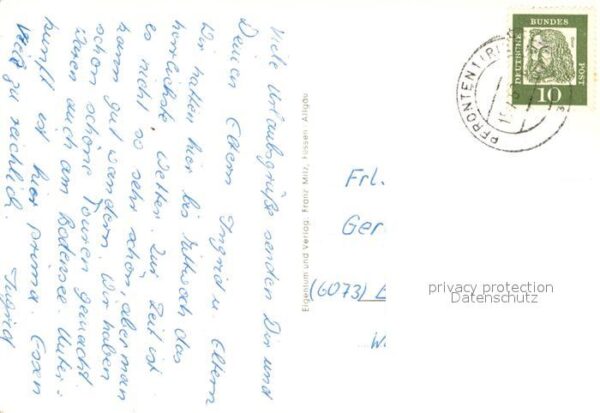 Viele Urlaubsgrüße senden Dir und
Deinen Eltern Ingrid u. Eltern
Wir hatten hier bis Mittwoch das
herrlichste Wetter. Zur Zeit ist
es nicht so sehr schön, aber man
kann gut wandern. Wir haben
schon schöne Touren gemacht
waren auch am Bodensee. Unter=
kunft ist hier prima. Essen
viel zu reichlich. Ingrid
Eigentum und Verlag. Franz Milz, Füssen Allgäu
DEUTSCHE
BUNDES
POST
10
PFRONTEN
Frl.
Ger
(6073)
W.
privacy protection
Datenschutz